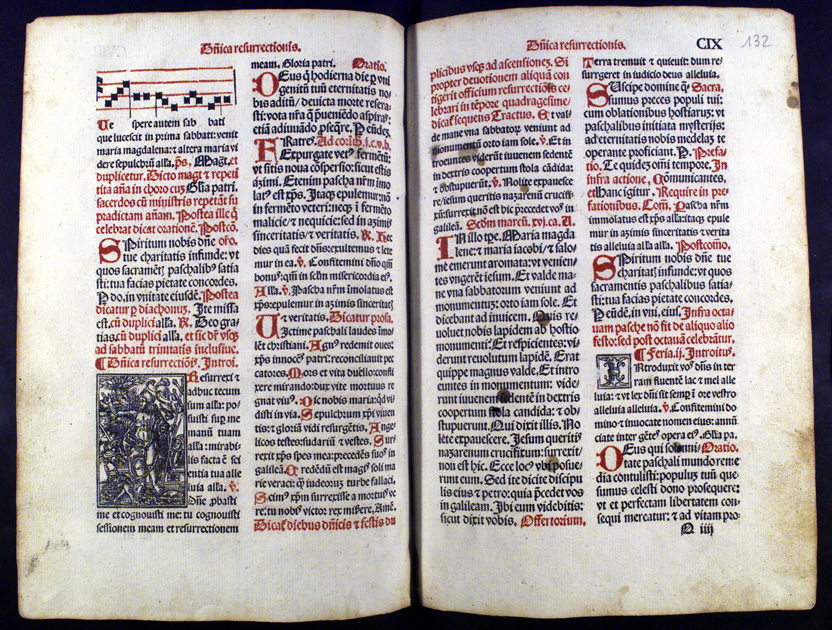 Dñica resurrectionis.
Ue spere autem sab bati
que lucescit in prima sabbati: venit
maria magdalene: et altera maria vi
dere sepulchrũ alla. ps. Magt. et
duplicetur. Dicto magt et repeti
tiõa aña in choro cuʒ Glia patri.
sacerdos cũ ministris repetãt su
pradictam añam. Postea ille q̃
celebrat dicat orationẽ. Postcõ.
SPiritum nobis dñe
tue charitatis infunde: vt
quos sacramẽtʒ paschalibʒ satia
sti: tua facias pietate concordes.
P do, in vnitate eiusdẽ. Postea
dicatur p diachonuʒ. Ite missa
est. cũ duplici alla. R. Deo gra
tias, cũ duplici alla. et sic dr̃ vsqʒ
ad sabbatũ trinitatis inclusiue.
¶ Dñica resurrectiõis. Introi.
Resurrexi et
adhuc tecum
sum alla: po
suisti sup me
manũ tuam
alla: mirabi
lis facta ẽ sci
entia tua alle
luia alla. v.
Dñe, pbasti
me et cognouisti me: tu cognouisti
sessionem meam et resurrectionem
meam. Gloria patri. Oratio.
DEus q̃ hodierna die p vni
genitũ tuũ eternitatis no
bis aditũ, deuicta morte resera
sti: vota nr̃a q̃ pueniẽdo aspiras:
etiã adiuuãdo pseqr̃e. P eũdẽ.
Ad corinth. j. c. v. b.
FRatres. Expurgate vetʒ fermẽtũ:
vt sitis noua cõspersio: sicut estis
azimi. Etenim pascha nr̃m ĩmo
latʒ est xp̃s. Itaqʒ epulemur: nõ
in fermẽto veteri: necqʒ ĩ fermẽto
malicie et nequicie: sed in azimis
sinceritatis et veritatis. R. Hec
dies quã fecit dñs: exultemus et lete
mur in ea. v. Confitemini dño qm̃
bonus: qm̃ in sclm̃ misericordia eiʒ.
Alla. v. Pascha nr̃m ĩmolatus est
xp̃s: epulemur in azimis sinceritatʒ
et veritatis. Dicatur prosa.
UIctime paschali laudes ĩmo
lẽt christiani. Agnʒ redemit oues:
xp̃s innocẽs patri: reconciliauit pec
catores. Mors et vita duello: confli
xere mirando: dux vite mortuus re
gnat viuʒ. Dic nobis maria: qd̃ vi
disti in via. Sepulchrum xp̃i viuen
tis: et gloriã vidi resurgẽtis. Ange
licos testes: sudariũ et vestes. Sur
rexit xp̃s spes mea: precedẽs suos in
galileã. Credẽdũ est magʒ soli ma
rie veraci: q̃ iudeorum turbe fallaci.
Scimʒ xp̃m surrexisse a mortuis ve
re: tu nobis victor rex miserere. Amẽ.
Dicat̃ diebus dñicis et festis du
Dñica resurrectionis. CIX 132
plicibus vsqʒ ad ascensionẽ. Si
propter deuotionem aliquã con
tigerit officium resurrectiõis ce
lebrari in tẽpore quadragesime,
dicat̃ sequens Tractus. Et val
de mane vna sabbatoʒ veniunt ad
monumentũ orto iam sole. v. Et in
troeuntes viderũt iuuenem sedentẽ
in dextris coopertum stola cãdida:
et obstupuerũt. v. Nolite expauesce
re: iesum queritis nazarenũ crucifi
xũ: surrexit, nõ est hic precedet vos in
galileã. Scdm̃ marcũ. xvj. ca. A.
IN illo tpe. Maria magda
lene: et maria iacobi, et salo
me emerunt aromata: vt venien
tes vngerẽt iesum. Et valde ma
ne vna sabbatorum veniunt ad
monumentuʒ: orto iam sole. Et
dicebant ad inuicem. Quis re
uoluet nobis lapidem ab hostio
monumenti: Et respicientes: vi
derunt reuolutum lapidẽ. Erat
quippe magnus valde. Et intro
euntes in monumentum: vide
runt iuuenem sedentẽ in dextris
coopertum stola candida: et ob
stupuerunt. Qui dixit illis. No
lite expauescere. Jesum queritis
nazarenum crucifixum: surrexit:
non est hic. Ecce locʒ vbi posue
runt eum. Sed ite dicite discipu
lis eius et petro: quia p̃cedet vos
in galileam. Ibi eum videbitis:
sicut dixit vobis. Offertorium.
Terra tremuit et quieuit: dum re
surgeret in iudicio deus alleluia.
Sacra.
SUscipe domine
sumus preces populi tui:
cum oblationibus hostiarum: vt
paschalibus initiata mysterijs:
ad eternitatis nobis medelaʒ te
operante proficiant. P. Prefa
tio. Te quidẽ omi tempore. In
infra actione, Cõmunicantes.
et Hanc igitur. Require in pre
fationibus. Com. Pascha nr̃m
immolatus est xp̃s alla: itaqʒ epule
mur in azimis sinceritatis et verita
tis alleluia alla alla. Postcomo.
SPiritum nobis dñe tue
charitatʒ infunde: vt quos
sacramentis paschalibus satia
sti: tua facias pietate concordes.
P eũdẽ, in vni. eiusʒ. Infra octa
uam pasche nõ fit de aliquo alio
festo: sed post octauã celebrãtur.
¶ Feria. ij. Introitus.
INtroduxit vos dñs in ter
ram fluentẽ lac et mel alle
luia: et vt lex dñi sit semp̃ ĩ ore vestro
alleluia alleluia. v. Confitemini do
mino et inuocate nomen eius: annũ
ciate inter gẽtes opera eiʒ. Glia pa.
DEus qui solẽni, Oratio.
tate paschali mundo reme
dia contulisti: populuʒ tuũ que
sumus celesti dono prosequere:
vt et perfectam libertatem con
sequi mereatur: et ad vitam pro
N iiij